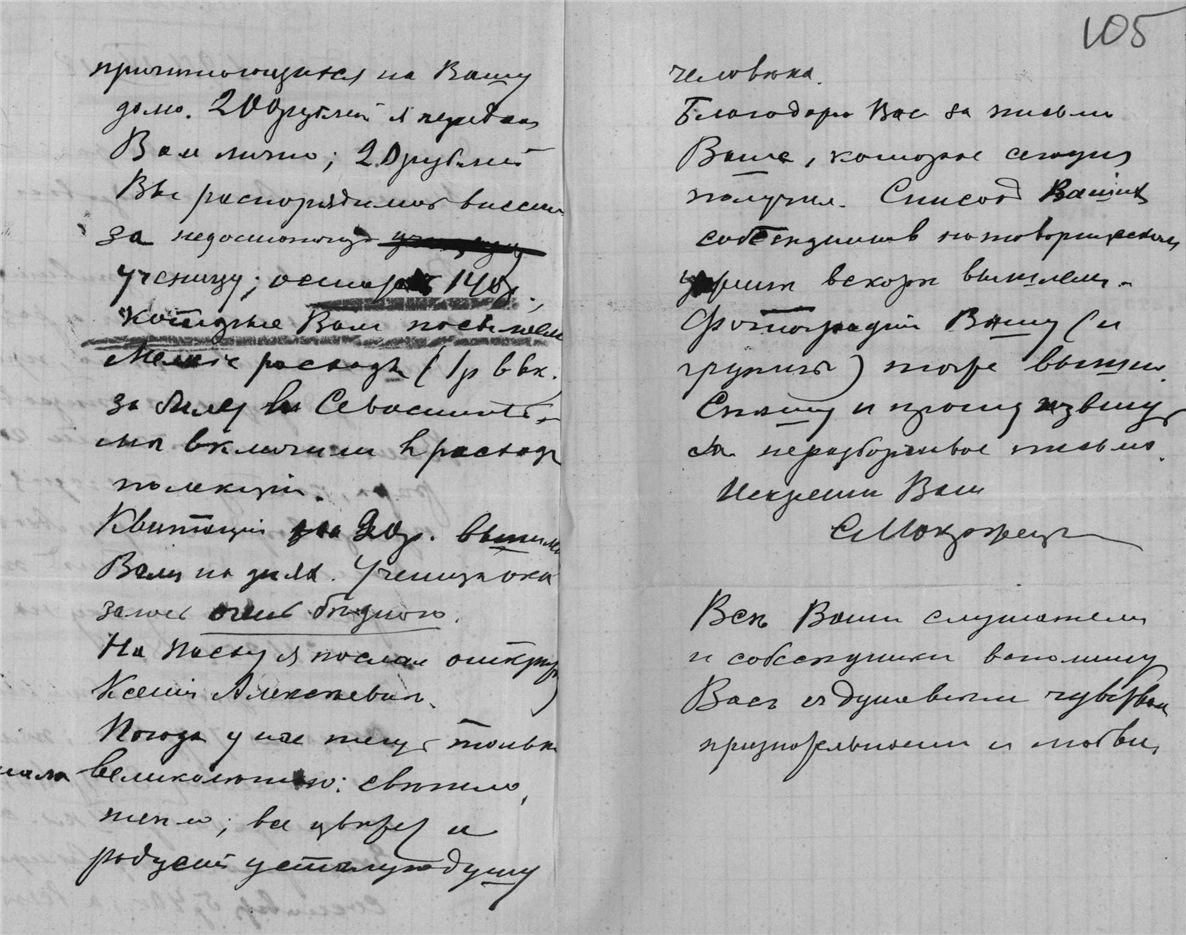 105
причитающихся на Вашу
долю. 200 рублей я передал
Вам лично; 20 рублей
Вы распорядились внести
за недостаточную
ученицу; остаются 140 р.,
которые Вам посылаем
Мелкіе расходы (1 р
за билет в Севастополь
мы включили в расходы
по лекціи.
Квитанцію на 20 р. вышлю
Вам на днях. Ученица ока
залась очень бедною.
На Пасху я послал открыт
Ксеніи Алексеевне.
Погода у нас теперь только
великолепною: светло,
тепло; все цветет и
радует усталую душу
человека.
Благодарю Вас за письмо
Ваше, которое сегодня
получил. Список Ваших
собеседников по товарищеским
вскоре вышлем.
Фотографію Вашу (и
группы) тоже вышлю.
Спешу и прошу извинить
за неразборчивое письмо.
Искренно Ваш
С Мокржецк
Все Ваши слушатели
и собеседники вспоминают
Вас с душевным чувством
признательности и любви.